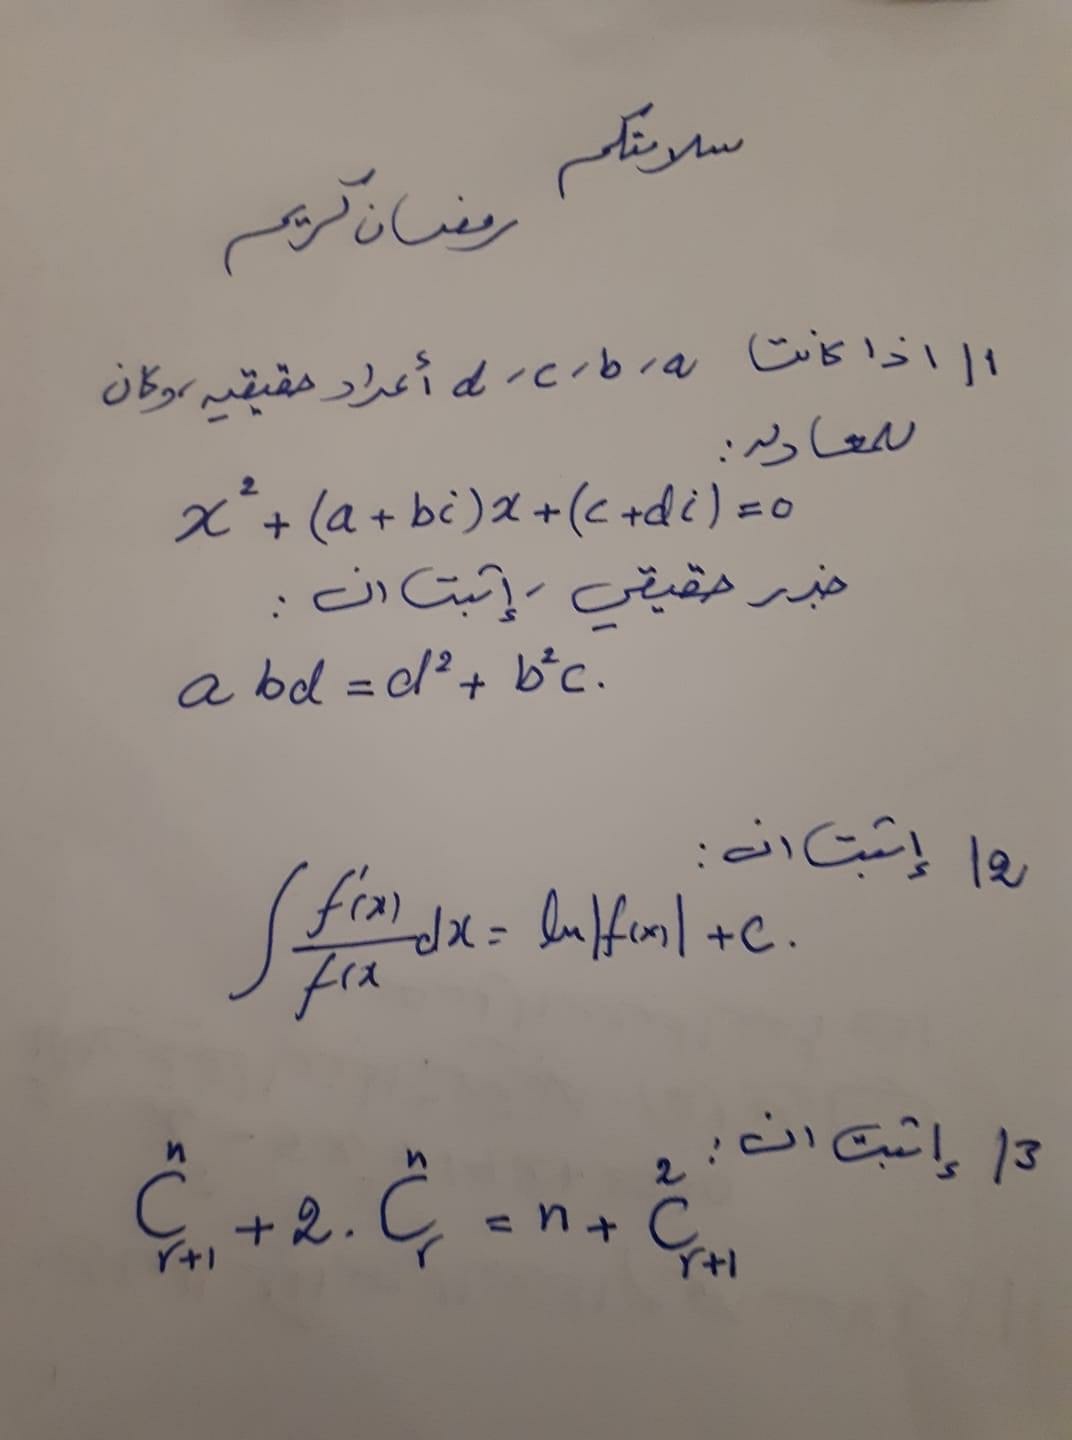 سلامتكم
رمضان كريم
1/ اذا كانت a، b، c، d أعداد حقيقيه، وكان
للمعادله:
x² + (a + bi)x + (c + di) = 0
جذر حقيقي، إثبت ان:
a bd = d² + b²c.
2/ إثبت ان:
∫ f'(x)/f(x dx = ln|f(x)| + C.
3/ إثبت ان:
ⁿCᵣ₊₁ + 2. ⁿCᵣ = n + ²Cᵣ₊₁